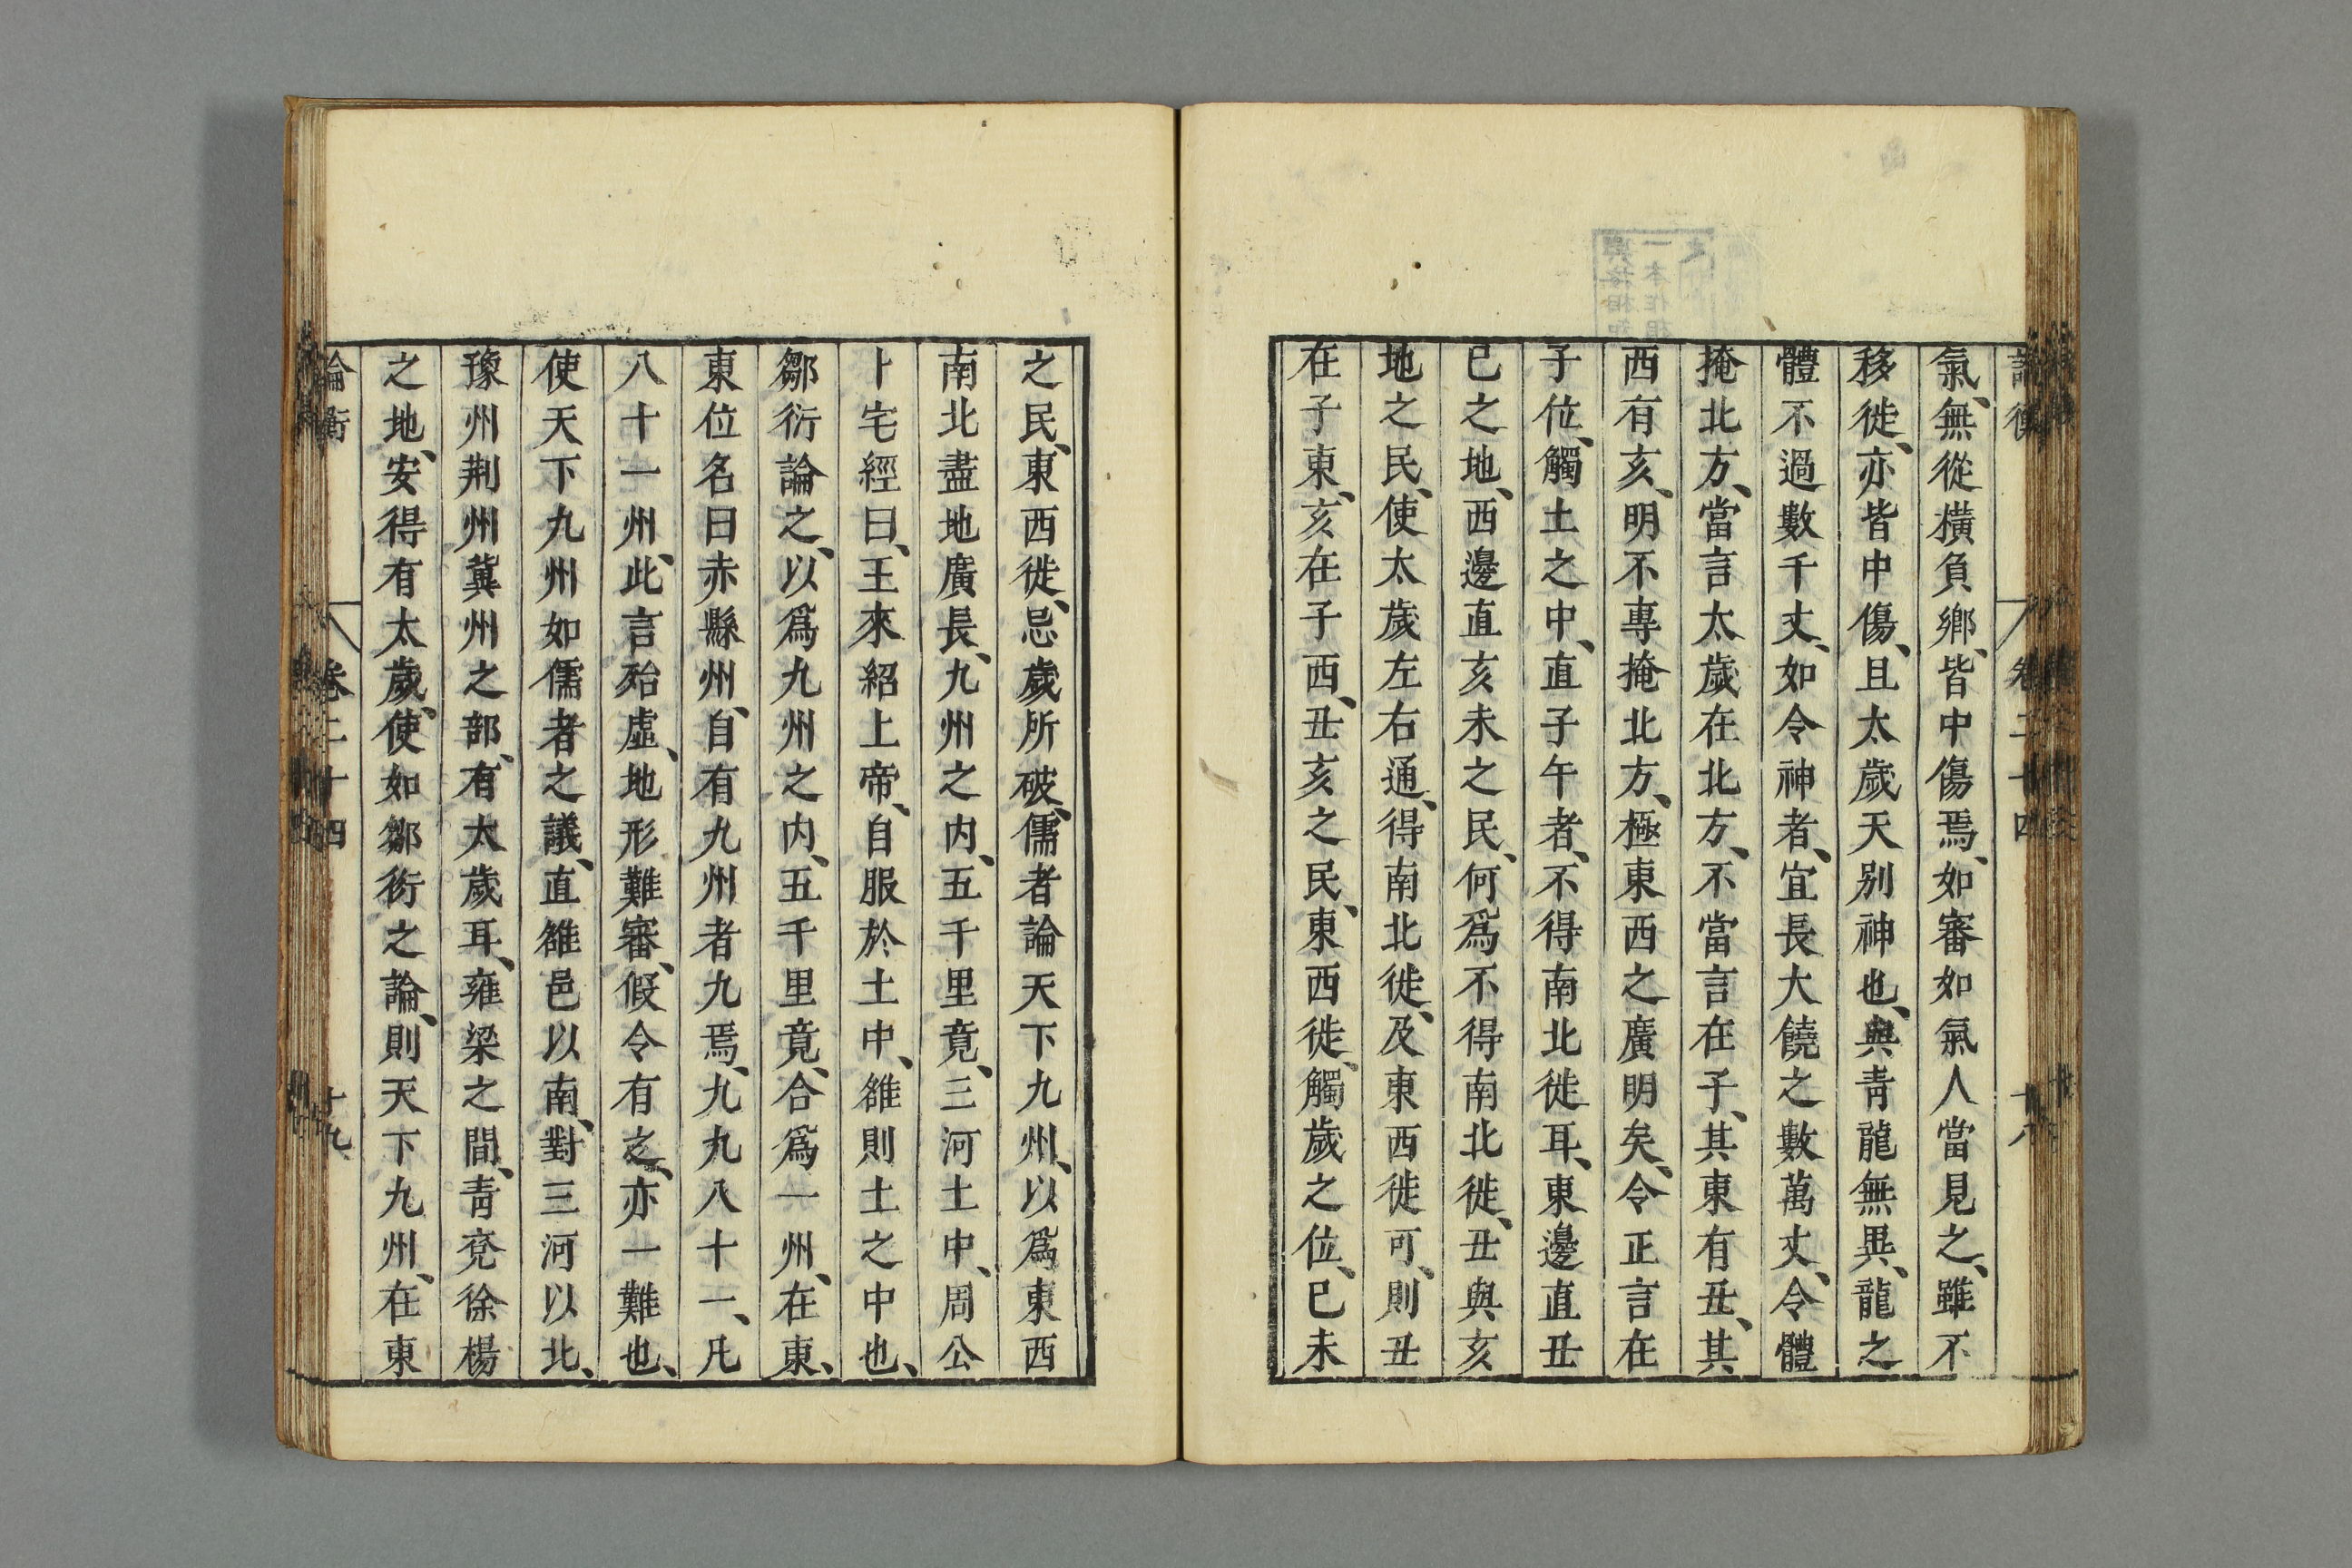 論衡 卷二十四 十八
氣、無從橫負鄉、皆中傷焉、如審如氣人當見之、雖不
移徙、亦皆中傷、且太歲天別神也、與青龍無異、龍之
體不過數千丈、如令神者、宜長大饒之數萬丈、令體
掩北方、當言太歲在北方、不當言在子、其東有丑、其
西有亥、明不專掩北方、極東西之廣明矣、令正言在
子位、觸土之中、直子午者、不得南北徙耳、東邊直丑
巳之地、西邊直亥未之民、何爲不得南北徙、丑與亥
地之民、使太歲左右通、得南北徙、及東西徙可、則丑
在子東、亥在子西、丑亥之民、東西徙、觸歲之位、巳未
之民、東西徙、忌歲所破、儒者論天下九州、以爲東西
南北盡地廣長、九州之內、五千里竟、三河土中、周公
卜宅經曰、王來紹上帝、自服於土中、雒則土之中也、
鄒衍論之、以爲九州之內、五千里竟、合爲一州、在東、
東位名曰赤縣州、自有九州者九焉、九九八十一、凡
八十一州、此言殆虛、地形難審、假令有之、亦一難也、
使天下九州如儒者之議、直雒邑以南、對三河以北、
豫州荆州冀州之部、有太歲耳、雍梁之間、青兗徐楊
之地、安得有太歲、使如鄒衍之論、則天下九州、在東
論衡 卷二十四 十九